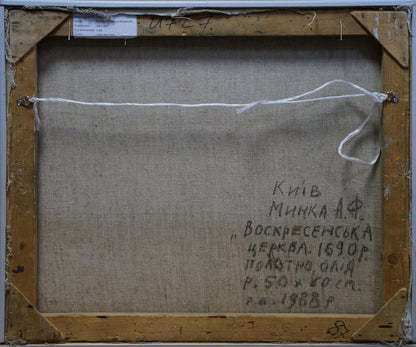 И727
КИЇВ
МИНКА А.Ф.
„ВОСКРЕСЕНСЬКА
ЦЕРКВА. 1690р.
ПОЛОТНО, ОЛІЯ
Р. 50 х 60 см.
1988 р